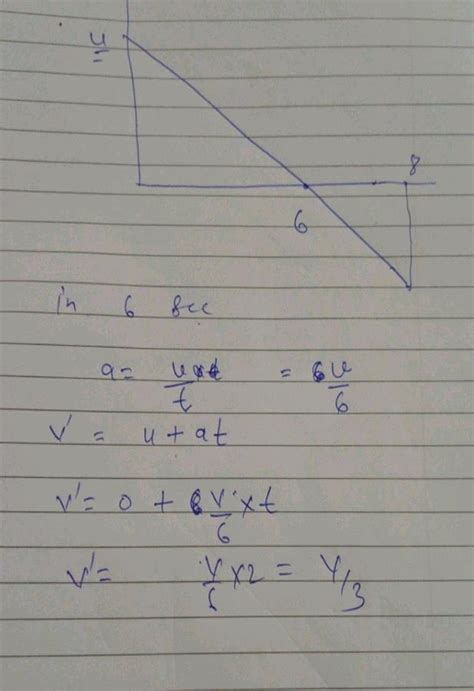 u
8
6
in 6 sec
a = u/t = u/6
v' = u + at
v' = 0 + v/6 × t
v' = v/6 × 2 = v/3